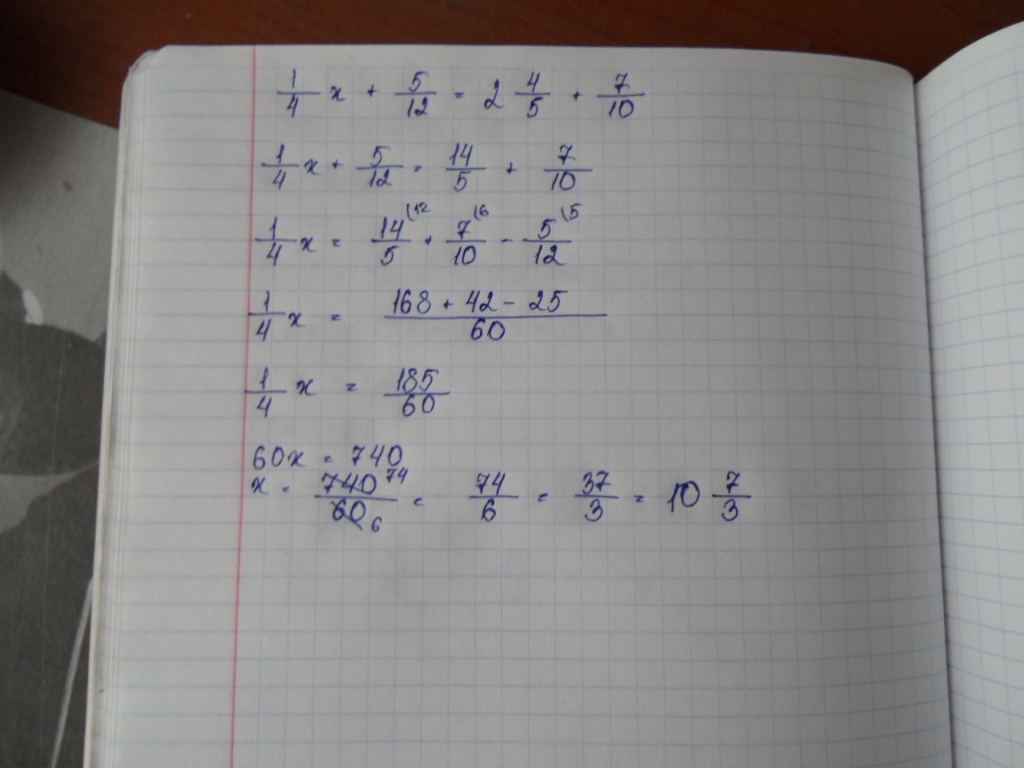 1/4 x + 5/12 = 2 4/5 + 7/10
1/4 x + 5/12 = 14/5 + 7/10
1/4 x = 14/5 (12 + 7/10 (6 - 5/12 (5
1/4 x = 168 + 42 - 25/60
1/4 x = 185/60
60x = 740
x = 740 74/60 6 = 74/6 = 37/3 = 10 7/3